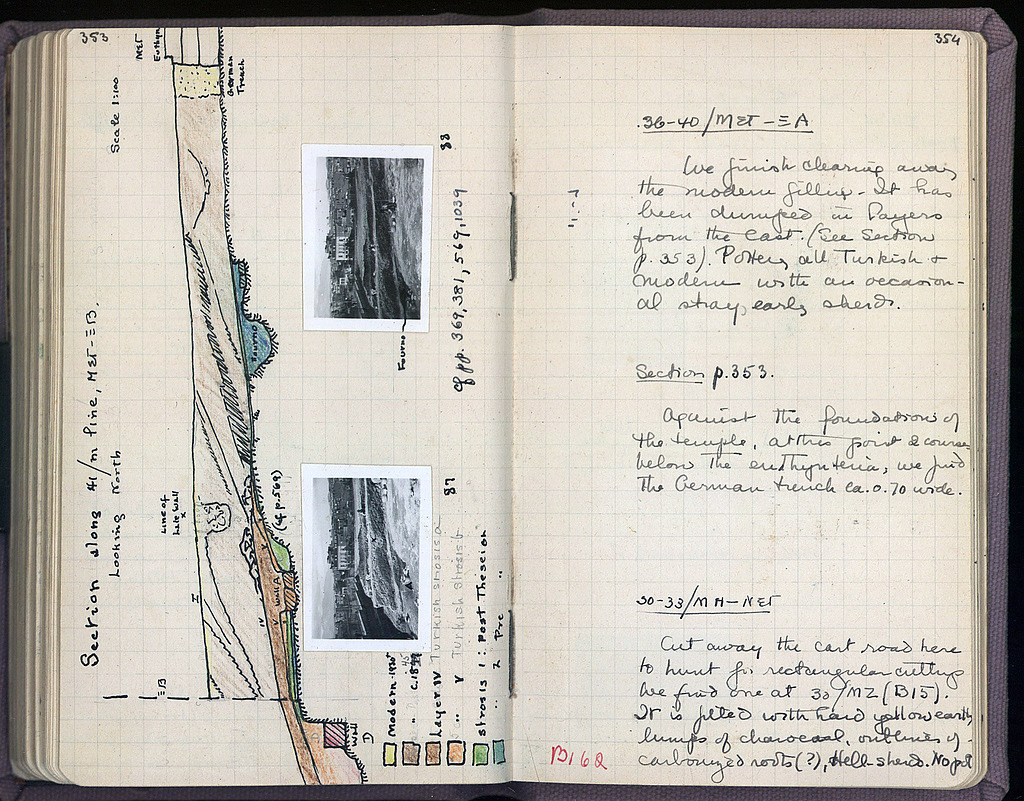 353
Section along 41/m line, MET-ΞB.
Looking North
Scale 1:100
MET
Euthyn
German
Trench
Line of
Late Wall
x
ΞB
IV
V
Wall A
(cf p. 569)
Fourno
Fourno
Wall
D
88
87
cf pp. 369, 381, 569, 1039
Modern - 1930
" c. 18
Layer IV Turkish strosis a
" V Turkish strosis b
strosis 1 : Post Theseion
" 2 Pre "
354
36-40/MET-ΞA
We finish clearing away
the modern filling - It has
been dumped in layers
from the East. (See Section
p. 353). Pottery all Turkish +
modern with an occasion-
al stray early sherd.
Section p. 353.
Against the foundations of
the temple, at this point 2 courses
below the euthynteria, we find
the German trench ca. 0.70 wide.
30-33/MH-NET
Cut away the cart road here
to hunt for rectangular cuttings
We find one at 30/MZ (B15).
It is filled with hard yellow earth,
lumps of charcoal, outlines of
carbonized roots (?), Hell. sherd. No pot
B162